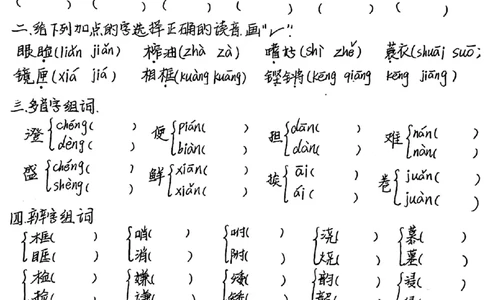 ( ) ( ) ( ) ( ) ( )
二.给下列加点的字选择正确的读音,画"✓".
眼睑(liǎn jiǎn) 榨油(zhà zà) 嗜好(shì zhě) 蓑衣(shuāi suō)
镜匣(xiá jiá) 相框(kuàng kuāng) 铿锵(kēng qiāng kēng jiāng)
三.多音字组词.
澄{chéng( ) 便{pián( ) 担{dān( ) 难{nán( )
dèng( ) biàn( ) dàn( ) nàn( )
盛{chéng( ) 鲜{xiān( ) 挨{āi( ) 卷{juǎn( )
shèng( ) xiǎn( ) ái( ) juàn( )
四.辨字组词
{框( ) {哨( ) {咐( ) {浇( ) {慕(
眶( ) 消( ) 附( ) 烧( ) 墓(
{检( ) {嫌( ) {矮( ) {韵( ) {浸(
捡( ) 谦(